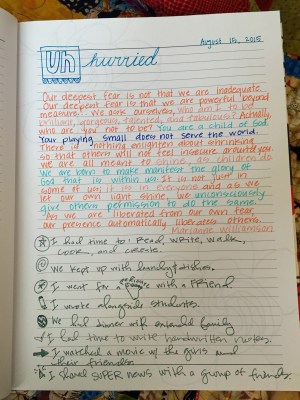 August 15, 2015
Unhurried
Our deepest fear is not that we are inadequate.
Our deepest fear is that we are powerful beyond
measure. We ask ourselves, who am I to be
brilliant, gorgeous, talented, and fabulous? Actually,
who are you not to be? You are a child of God.
Your playing small does not serve the world.
There is nothing enlighten about shrinking
so that others will not feel insecure around you.
We are all meant to shine, as children do.
We are born to make manifest the glory of
God that is within us. It is not just in
some of us; it is in everyone and as we
let our own light shine, we unconsciously
give others permission to do the same.
As we are liberated from our own fear,
our presence automatically liberates others.
Marianne Williamson
I had time to: Read, write, walk,
cook, and create.
We kept up with laundry & dishes.
I went for a with a friend.
I wrote alongside students.
We had dinner with extended family
I had time to write handwritten notes.
I watched a movie w/ the guys and
their friends.
I shared SUPER news with a group of friends.